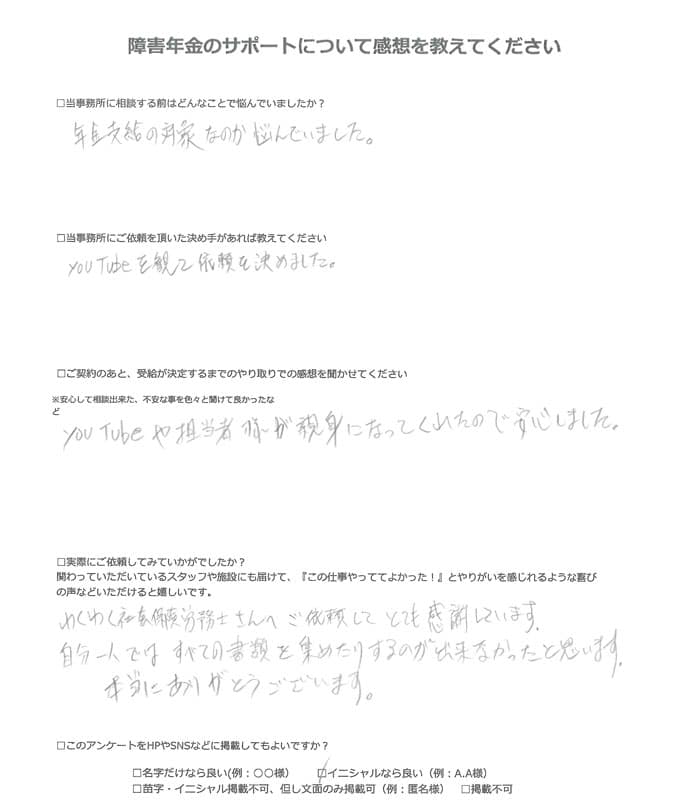 障害年金のサポートについて感想を教えてください
□当事務所に相談する前はどんなことで悩んでいましたか？
年金支給の対象なのか悩んでいました。
□当事務所にご依頼を頂いた決め手があれば教えてください
YouTubeを観て依頼を決めました。
□ご契約のあと、受給が決定するまでのやり取りでの感想を聞かせてください
※安心して相談出来た、不安な事を色々と聞けて良かったな
ど
YouTubeや担当者様が親身になってくれたので安心しました。
□実際にご依頼してみていかがでしたか？
関わっていただいているスタッフや施設にも届けて、『この仕事やっててよかった！』とやりがいを感じれるような喜び
の声などいただけると嬉しいです。
わくわく社会保険労務士さんへご依頼してとても感謝しています.
自分一人ではすべての書類を集めたりするのが出来なかったと思います.
本当にありがとうございます。
□このアンケートをHPやSNSなどに掲載してもよいですか？
□名字だけなら良い(例：〇〇様） □イニシャルなら良い（例：A.A様）
□苗字・イニシャル掲載不可、但し文面のみ掲載可（例：匿名様） □掲載不可